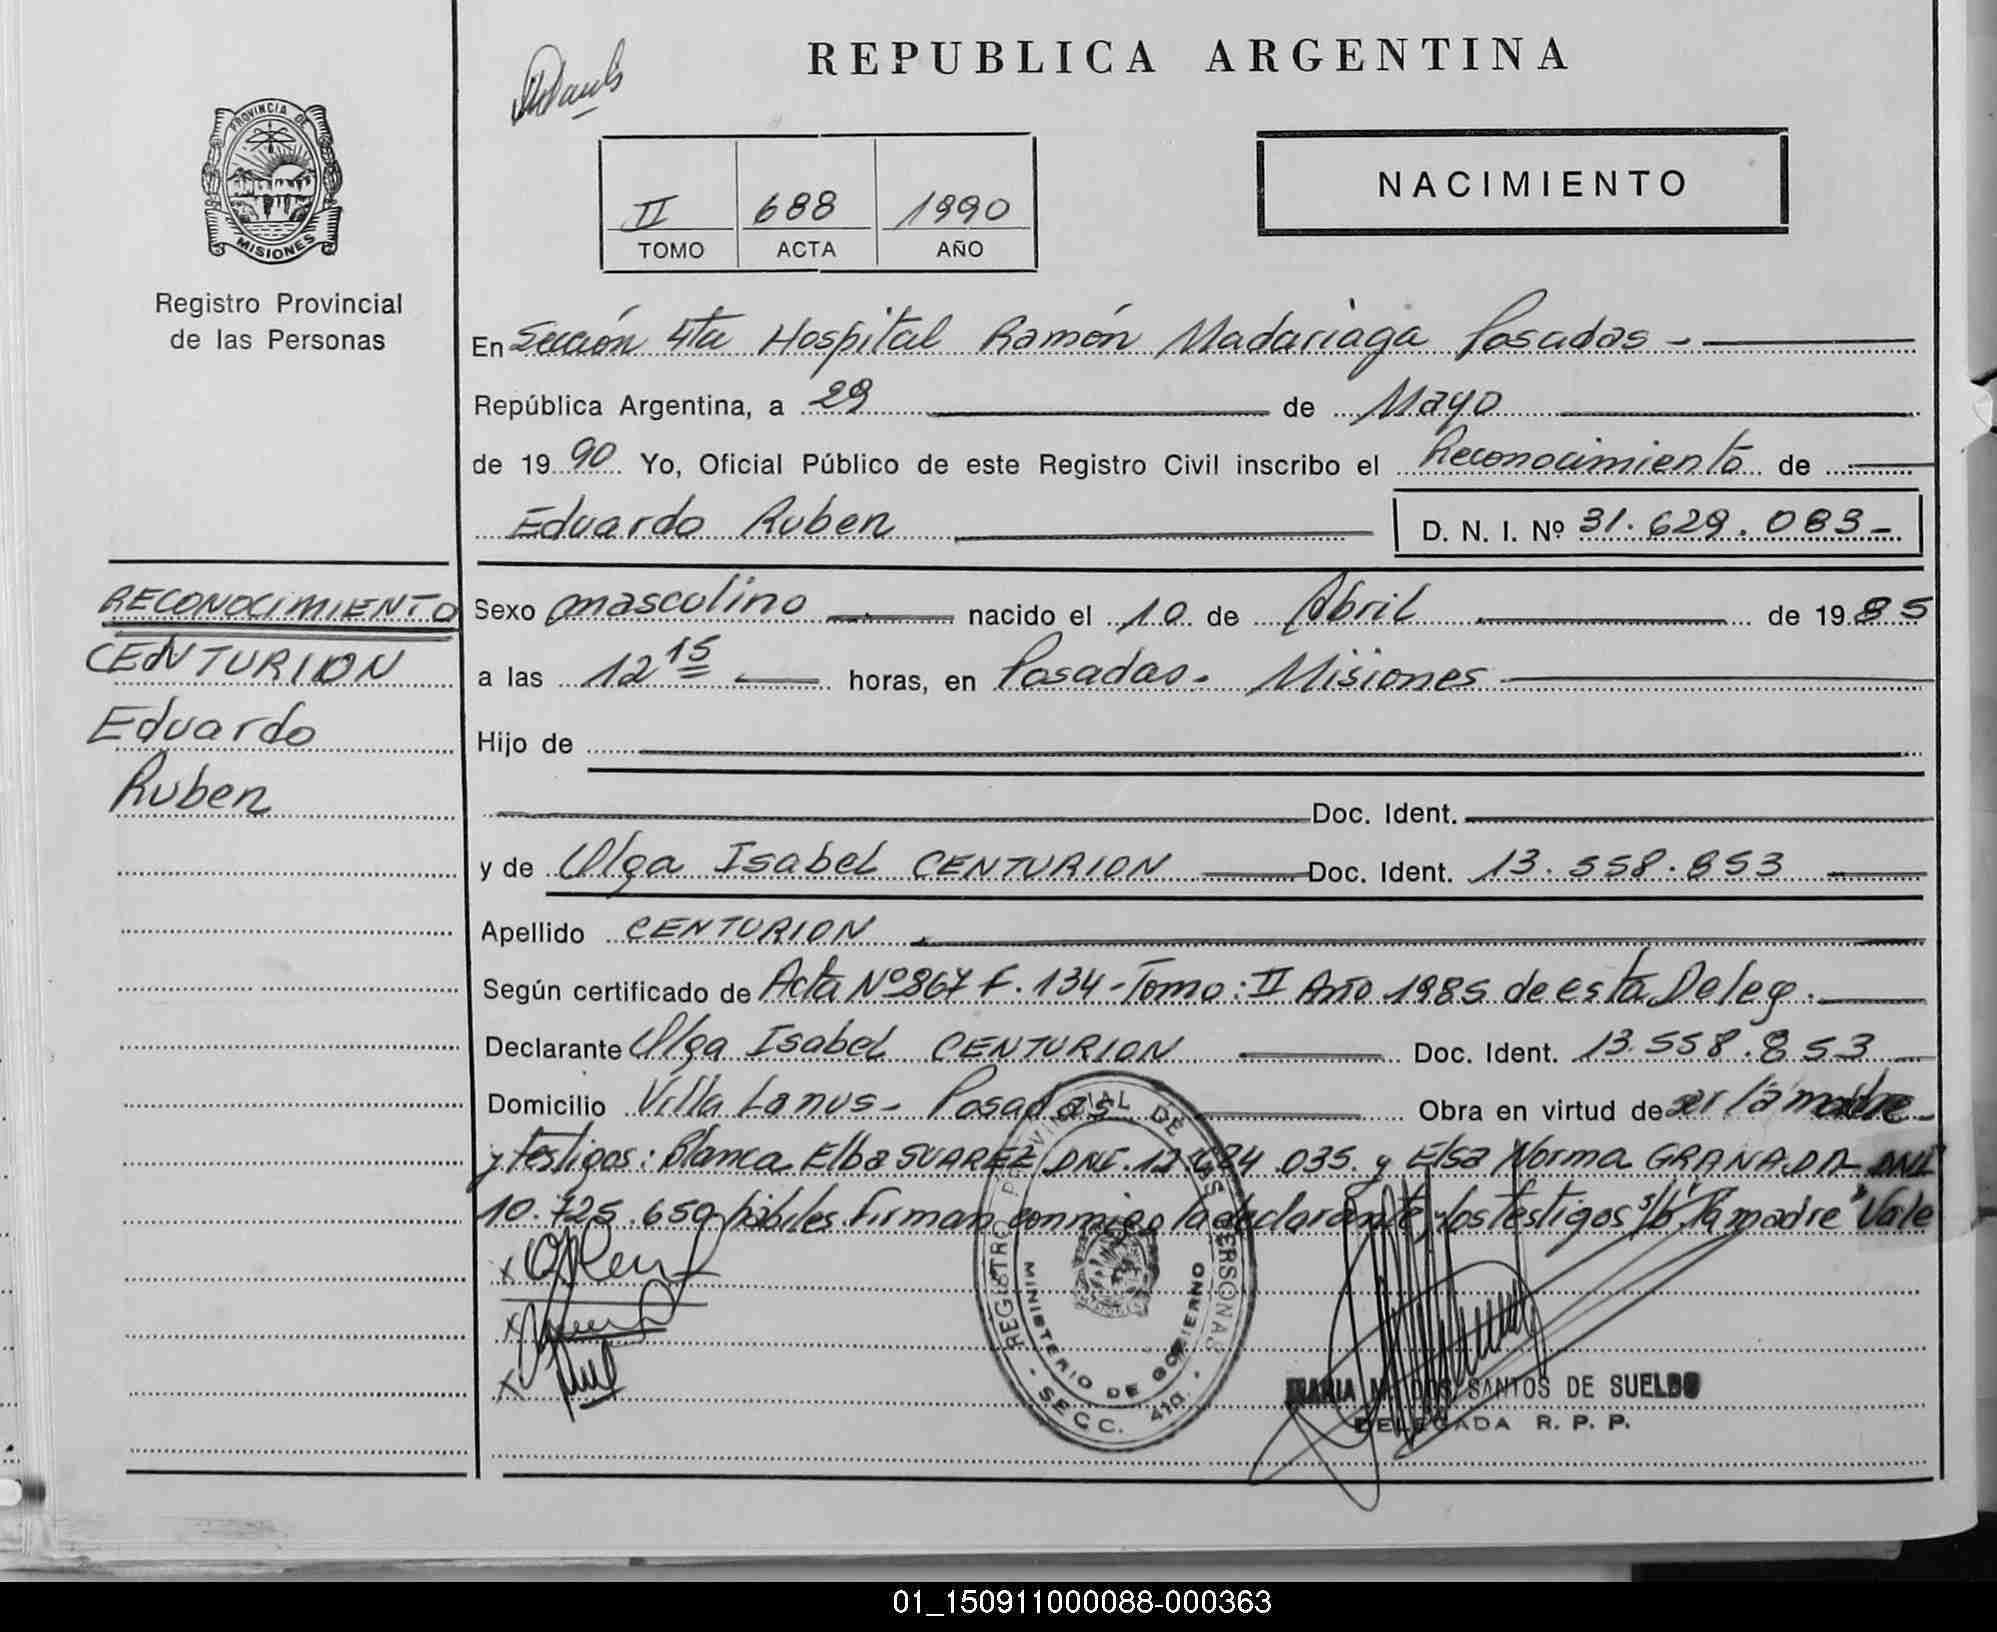 REPUBLICA ARGENTINA
PROVINCIA DE
MISIONES
Registro Provincial
de las Personas
II 688 1990
TOMO ACTA AÑO
NACIMIENTO
En Sección 4ta Hospital Ramón Madariaga Posadas -
República Argentina, a 29 de Mayo
de 1990 Yo, Oficial Público de este Registro Civil inscribo el Reconocimiento de
Eduardo Ruben D. N. I. Nº 31.629.083-
RECONOCIMIENTO
CENTURION
Eduardo
Ruben
Sexo masculino nacido el 10 de Abril de 1985
a las 12 15 horas, en Posadas. Misiones
Hijo de
Doc. Ident.
y de Olga Isabel CENTURION Doc. Ident. 13.558.853
Apellido CENTURION
Según certificado de Acta Nº 867 F. 134 - Tomo: II Año 1985 de esta Deleg.
Declarante Olga Isabel CENTURION Doc. Ident. 13.558.853
Domicilio Villa Lanus - Posadas Obra en virtud de ser la madre
y testigos: Blanca Elba SUAREZ DNI. 035. y Elsa Norma GRANADA DNI
10.725.659 hábiles. Firman conmigo la declarante y los testigos s/b "la madre" Vale
REGISTRO PROVINCIAL DE LAS PERSONAS
MINISTERIO DE GOBIERNO
- SECC. 4ta. -
MARIA M. DOS SANTOS DE SUELDO
DELEGADA R. P. P.
01_150911000088-000363